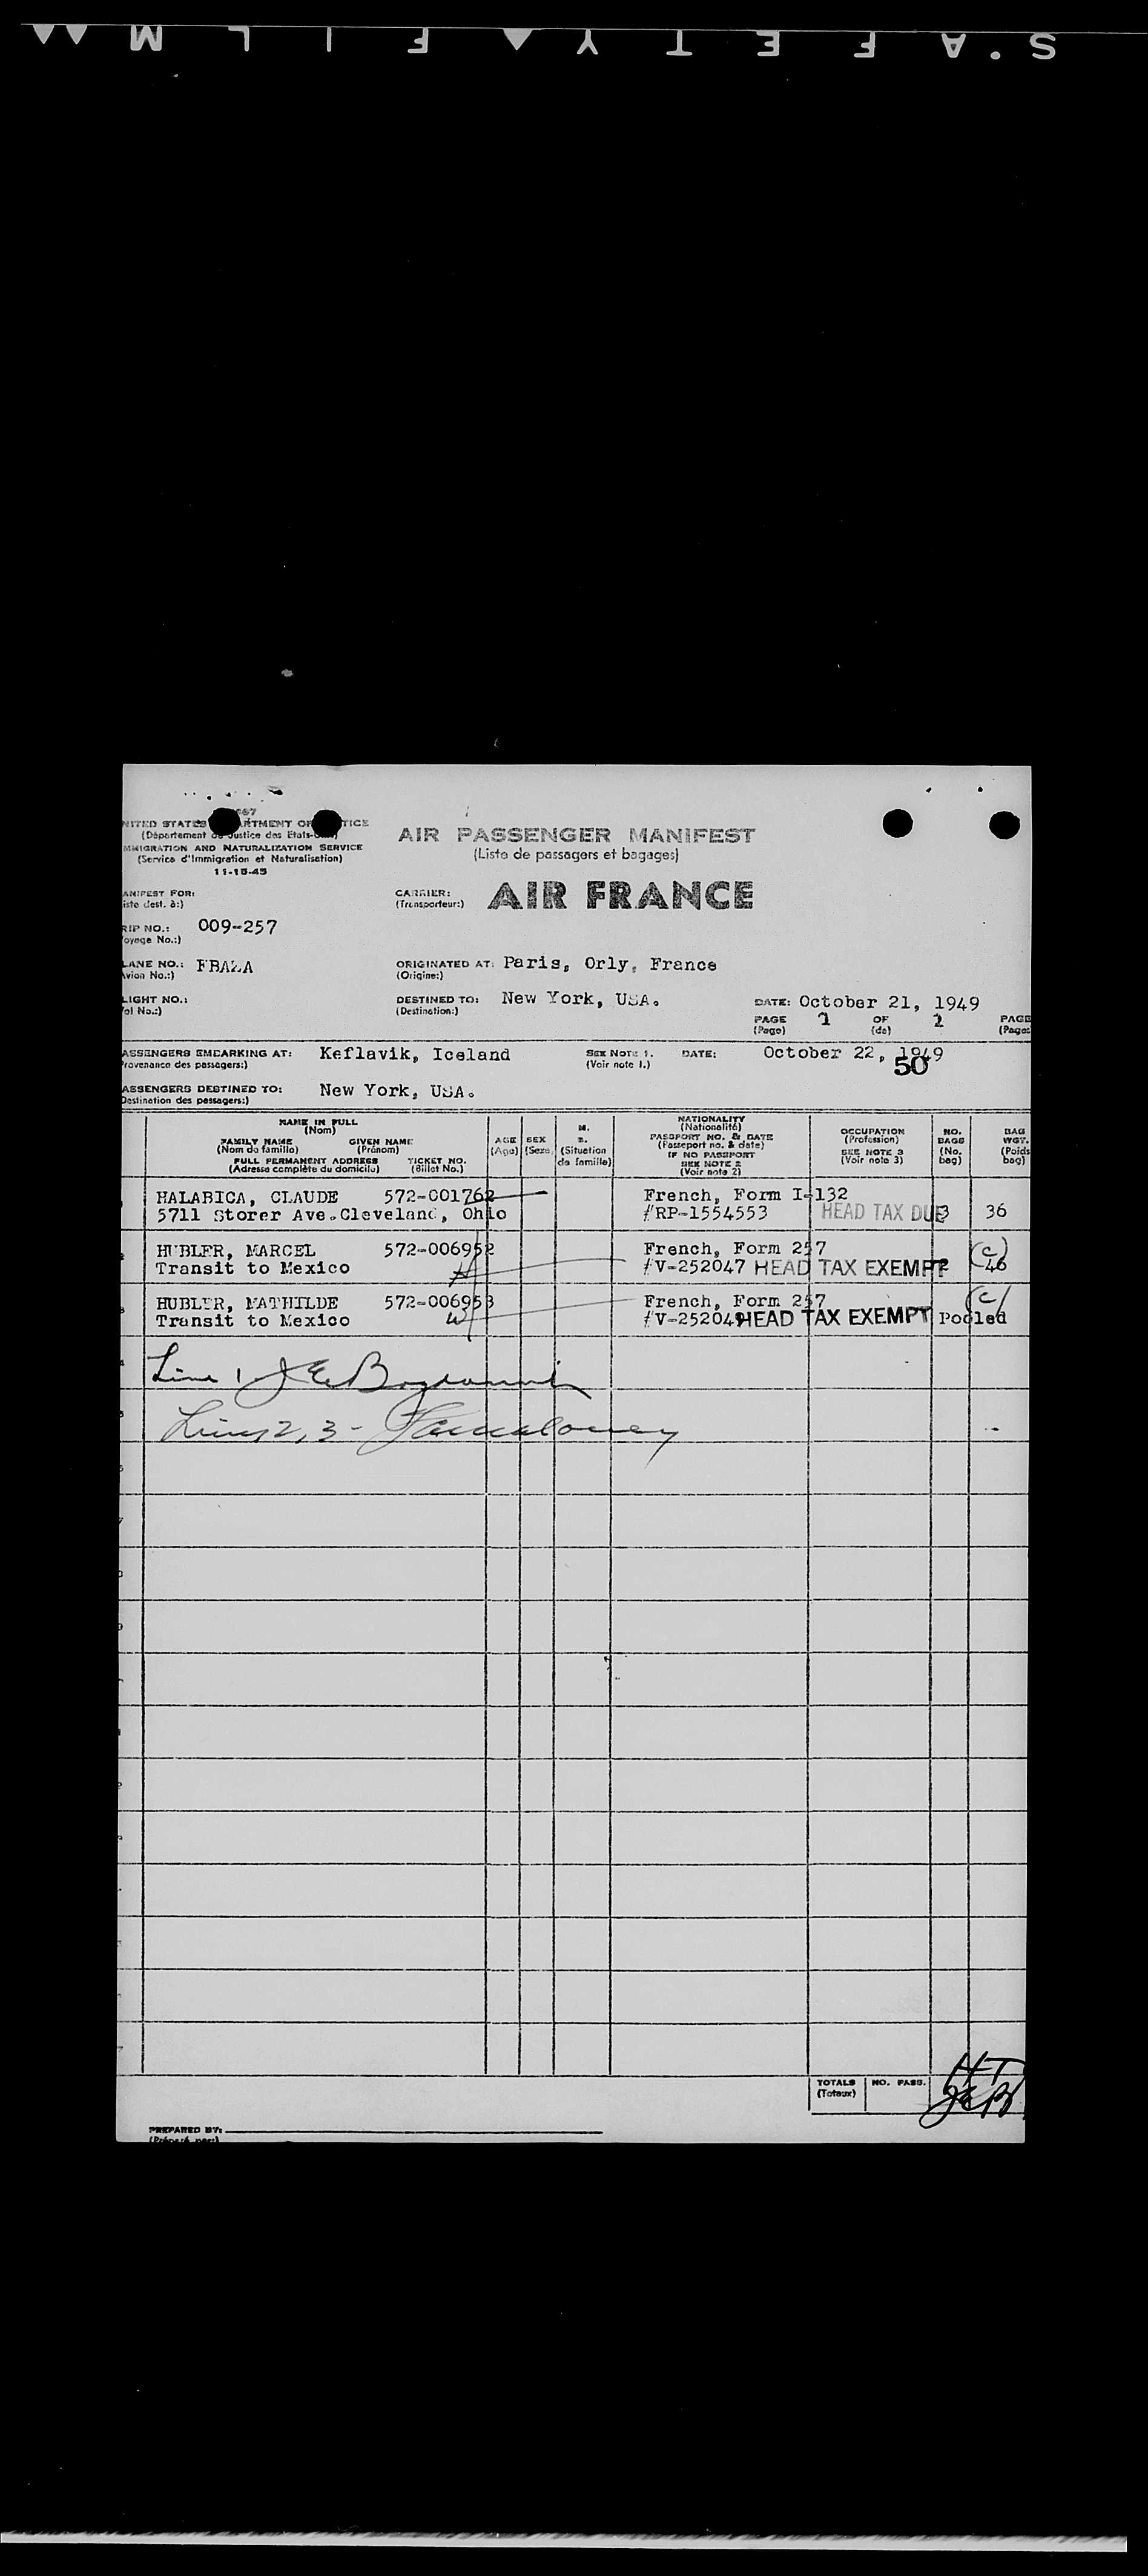 SAFETY FILM
UNITED STATES DEPARTMENT OF JUSTICE
(Département de Justice des Etats-Unis)
IMMIGRATION AND NATURALIZATION SERVICE
(Service d'Immigration et Naturalisation)
11-15-45
AIR PASSENGER MANIFEST
(Liste de passagers et bagages)
MANIFEST FOR:
(Liste dest. à:)
CARRIER: AIR FRANCE
(Transporteur:)
TRIP NO.: 009-257
(Voyage No.:)
PLANE NO.: FBAZA ORIGINATED AT: Paris, Orly, France
(Avion No.:) (Origine:)
FLIGHT NO.: DESTINED TO: New York, USA. DATE: October 21, 1949
(Vol No.:) (Destination:) PAGE OF PAGE
(Page) (de) (Pages
PASSENGERS EMBARKING AT: Keflavik, Iceland SEE NOTE 1. DATE: October 22, 1949
(Provenance des passagers:) (Voir note 1.) 50
PASSENGERS DESTINED TO: New York, USA.
(Destination des passagers:)
NAME IN FULL
(Nom)
FAMILY NAME GIVEN NAME
(Nom de famille) (Prénom)
FULL PERMANENT ADDRESS TICKET NO.
(Adresse complète du domicile) (Billet No.)
AGE
(Age)
SEX
(Sexe)
M.
S.
(Situation
de famille)
NATIONALITY
(Nationalité)
PASSPORT NO. & DATE
(Passeport no. & date)
IF NO PASSPORT
SEE NOTE 2
(Voir note 2)
OCCUPATION
(Profession)
SEE NOTE 3
(Voir note 3)
NO.
BAGS
(No.
bag)
BAG
WGT.
(Poids
bag)
HALABICA, CLAUDE 572-001762 French, Form I-132
5711 Storer Ave.Cleveland, Ohio #RP-1554553 HEAD TAX DUE 3 36
HUBLER, MARCEL 572-006952 French, Form 257 (c)
Transit to Mexico #V-252047 HEAD TAX EXEMPT 2 46
HUBLER, MATHILDE 572-006953 French, Form 257 (c)
Transit to Mexico #V-25204 HEAD TAX EXEMPT Pooled
Line 1
Lines 2, 3 -
TOTALS NO. PASS. HT
(Totaux) JEB
PREPARED BY:
(Préparé par:)